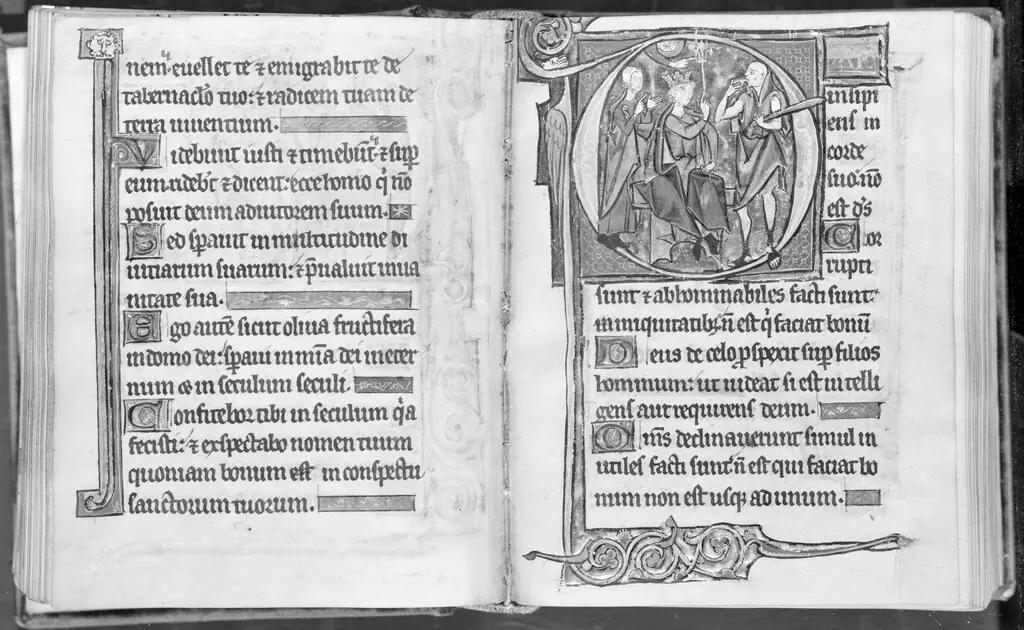 nem euellet te ⁊ emigrabit te de
tabernaclo tuo: ⁊ radicem tuam de
terra uiuentium.
Videbunt iusti ⁊ timebunt ⁊ sup
eum ridebt ⁊ dicent: ecce homo q̇ nō
posuit deum adiutorem suum.
Sed spauit in multitudine di
uitiarum suarum: ⁊ p̄ualuit in ua
nitate sua.
Ego autē sicut oliua fructifera
in domo dei: spaui in mīa dei in eter
num ⁊ in seculum seculi.
Confitebor tibi in seculum q̄a
fecisti: ⁊ exspectabo nomen tuum
quoniam bonum est in conspectu
sanctorum tuorum.
insipi
ens in
corde
suo: nō
est d̄s
Cor
rupti
sunt ⁊ abhominabiles facti sunt
in iniquitatibꝫ: n̄ est q̇ faciat bonū
Deus de celo ꝓspexit sup filios
hominum: ut uideat si est intelli
gens aut requirens deum.
Om̄s declinauerunt simul in
utiles facti sunt: n̄ est qui faciat bo
num non est usqꝫ ad unum.